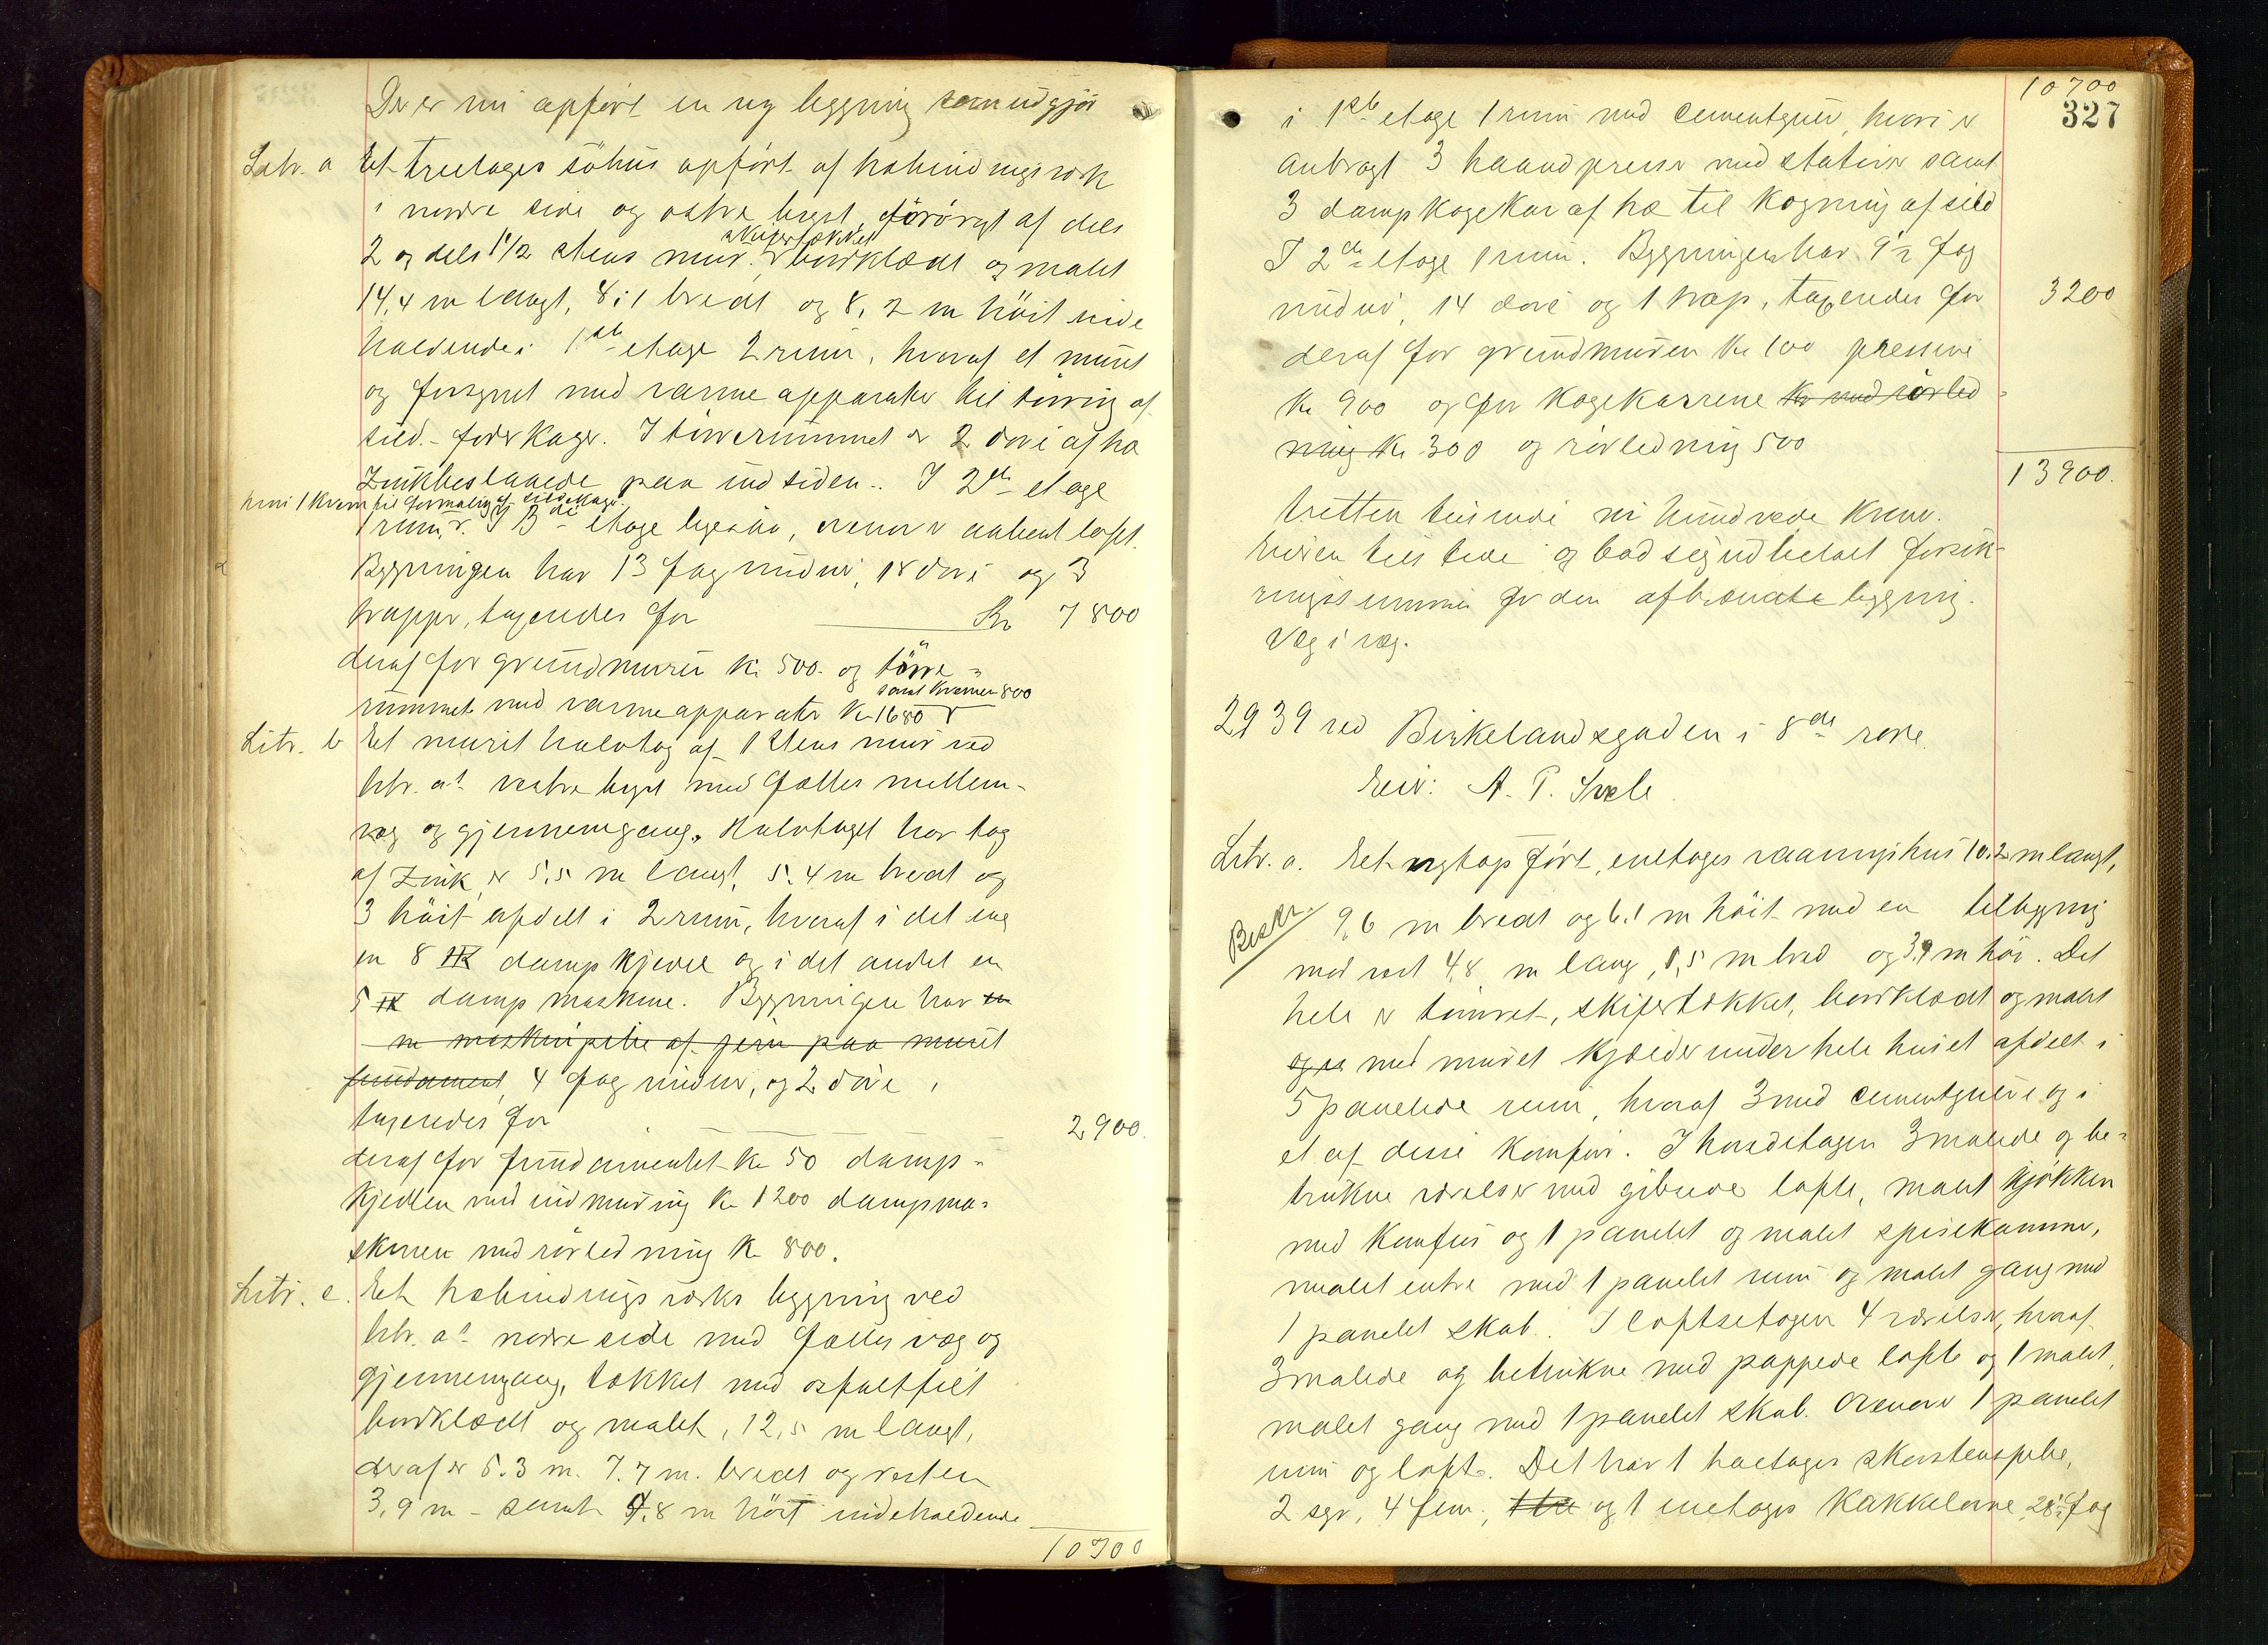 Der er nu opført en ny bygning som udgjør
Litr. a Et treetages söhus opført af træbindingsverk
i nordre side og østre bryst, forøvrigt af dels
skifertækket
2 og dels 1 1/2 stens mur. bordklædt og malet
14,4 m langt, 8,1 bredt og 8,2 m høit inde
holdende i 1ste etage 2 rum, hvoraf et muret
og forsynet med varmeapparater til tørring af
sild- foderkager. I tørrerummet er 2 döre af træ
Zinkbeslaaede paa indsiden. I 2den etage
hvori 1 kvern til formaling af sildekager
1 rum. I 3die etage ligesaa, ovenover aabent loft.
Bygningen har 13 fag vinduer, 18 döre og 3
trapper, taxeredes for Kr 7800
deraf for grundmuren kr 500. og tørre-
samt kvernen 800
rummet med varmeapparater kr 1680
Litr. b Et muret halvtag af 1 stens mur ved
litr. a's vestre bryst med fælles mellem-
væg og gjennemgang. Halvtaget har tag
af Zink, er 5,5 m langt, 5,4 m bredt og
3 høit afdelt i 2 rum, hvoraf i det ene
en 8 HK dampkjedel og i det andet en
5 HK damp maskine. Bygningen har en
m maskinpibe af jern paa muret
fundament, 4 fag vinduer, og 2 döre,
taxeredes for 2900.
deraf for fundamentet kr 50 damp-
kjedlen med indmuring kr 1200 dampma-
skinen med rörledning kr 800.
Litr. c. Et træbindingsverks bygning ved
litr. a's nordre side med fælles væg og
gjennemgang, tækket med asfaltfilt
bordklædt og malet, 12,5 m langt,
deraf er 5.3 m. 7.7 m. bredt og resten
3,9 m - samt 9,8 m höit indeholdende
10700
10700
327
i 1ste etage 1 rum med cementgulv, hvori er
anbragt 3 haandpresser med stativer samt
3 dampkogekar af træ til kogning af sild
I 2den etage 1 rum. Bygningen har 9 1/2 fag
vinduer, 14 döre og 1 trap, taxeredes for 3200
deraf for grundmuren kr 100 presserne
kr 900 og for kogekarrene kr med rörled-
ning kr 300 og rörledning 500
13900.
tretten tusinde ni hundrede kroner.
Eieren tilstede og bad sig udbetalt forsik-
ringssummen for den afbrændte bygning.
Væg i væg.
2939 ved Birkelandsgaden i 8de rode.
Eier: A. T. Svele.
Litr. a. Et nyt opført, enetages vaaningshus 10.2 m langt,
Beskr.
9,6 m bredt og 6.1 m höit med en tilbygning
mod vest 4,8 m lang, 1,5 m bred og 3,9 m höi. Det
hele er tömret, skifertækket, bordklædt og malet
og er med muret kjælder under hele huset afdelt i
5 panelede rum, hvoraf 3 med cementgulve og i
et af disse komfur. I hovedetagen 3 malede og be-
trukne værelser med gibsede lofte, malet kjøkken
med komfur og 1 panelet og malet spisekammer,
malet entre med 1 panelet rum og malet gang med
1 panelet skab. I loftsetagen 4 værelser, hvoraf
3 malede og betrukne med pappede lofte og 1 malet,
malet gang med 1 panelet skab. Ovenover 1 panelet
rum og loft. Det har 1 treetages skorstenspibe,
2 sgr, 4 fem, 1 tre og 1 enetages kakkelovne, 28 1/2 fag